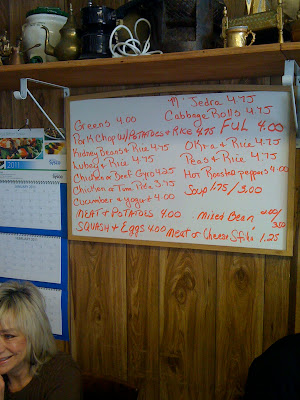 M'Jedra 4.75
Greens 4.00
Cabbage Rolls 4.75
Pork Chop w/ Potatoes + Rice 4.75
FUL 4.00
Kidney Beans + Rice 4.75
Okra + Rice 4.75
Lubey + Rice 4.75
Peas + Rice 4.75
Chicken or Beef Gyro 4.25
Hot Roasted peppers 4.00
Chicken or Tuna Pita 3.75
Soup 1.75/3.00
Cucumber + yogurt 4.00
MEAT + POTATOES 4.00
Mixed Bean
SQUASH + Eggs 4.00
Meat or Cheese Sfiha 1.25
2011
Sysco